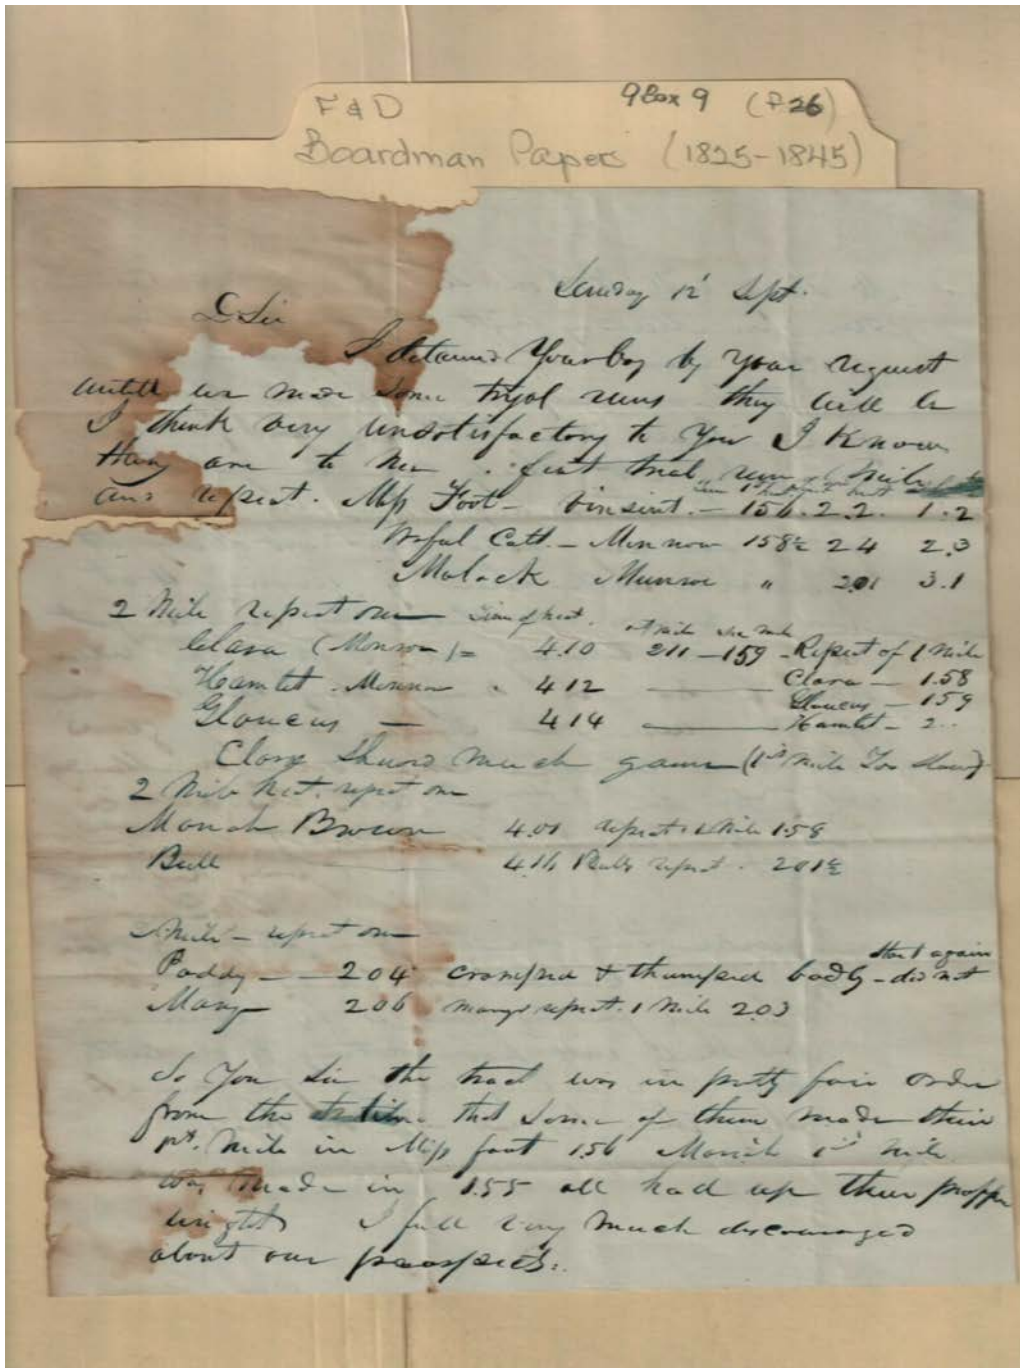 F & D 9 Box 9 (F26)
Boardman Papers (1825-1845)
Sunday 12 Sept.
D Sir
I detained Your boy by your request
untill we made some tryal runs they will be
I think very unsatisfactory to You I Know
they are to me . first trial run mile
and repeat. Miss Foot - Vinsint. - 156. 2.2. 1.2
Woful Catt. - Minnow 158½ 24 2.3
Molock Munroe " 201 3.1
2 Mile repeat one time of heat. 1st mile 2nd mile
Clara (Monroe) = 4.10 211 - 159 - Repeat of 1 Mile
Hamlet - Minnow . 412 Clara - 1.58
Glaucus - 414 Glaucus - 159
Hamlet - 2..
Clara shows much game (1st Mile Too slow)
2 Mile heat. repeat one
Mariah Brown 4.01 repeat 1 Mile 1.58
Bell 4.14 Bells repeat . 201½
Mile - repeat one
Paddy - 204 cramped & thumped badly - did not start again
Mary 206 Marys repeat. 1 Mile 203
So You see the track was in pretty fair order
from the time that some of them made their
1st. Mile in Miss foot 156 Mariah 1st Mile
was made in 1.55 all had up their propper
weights I feel very much discouraged
about our prospects.